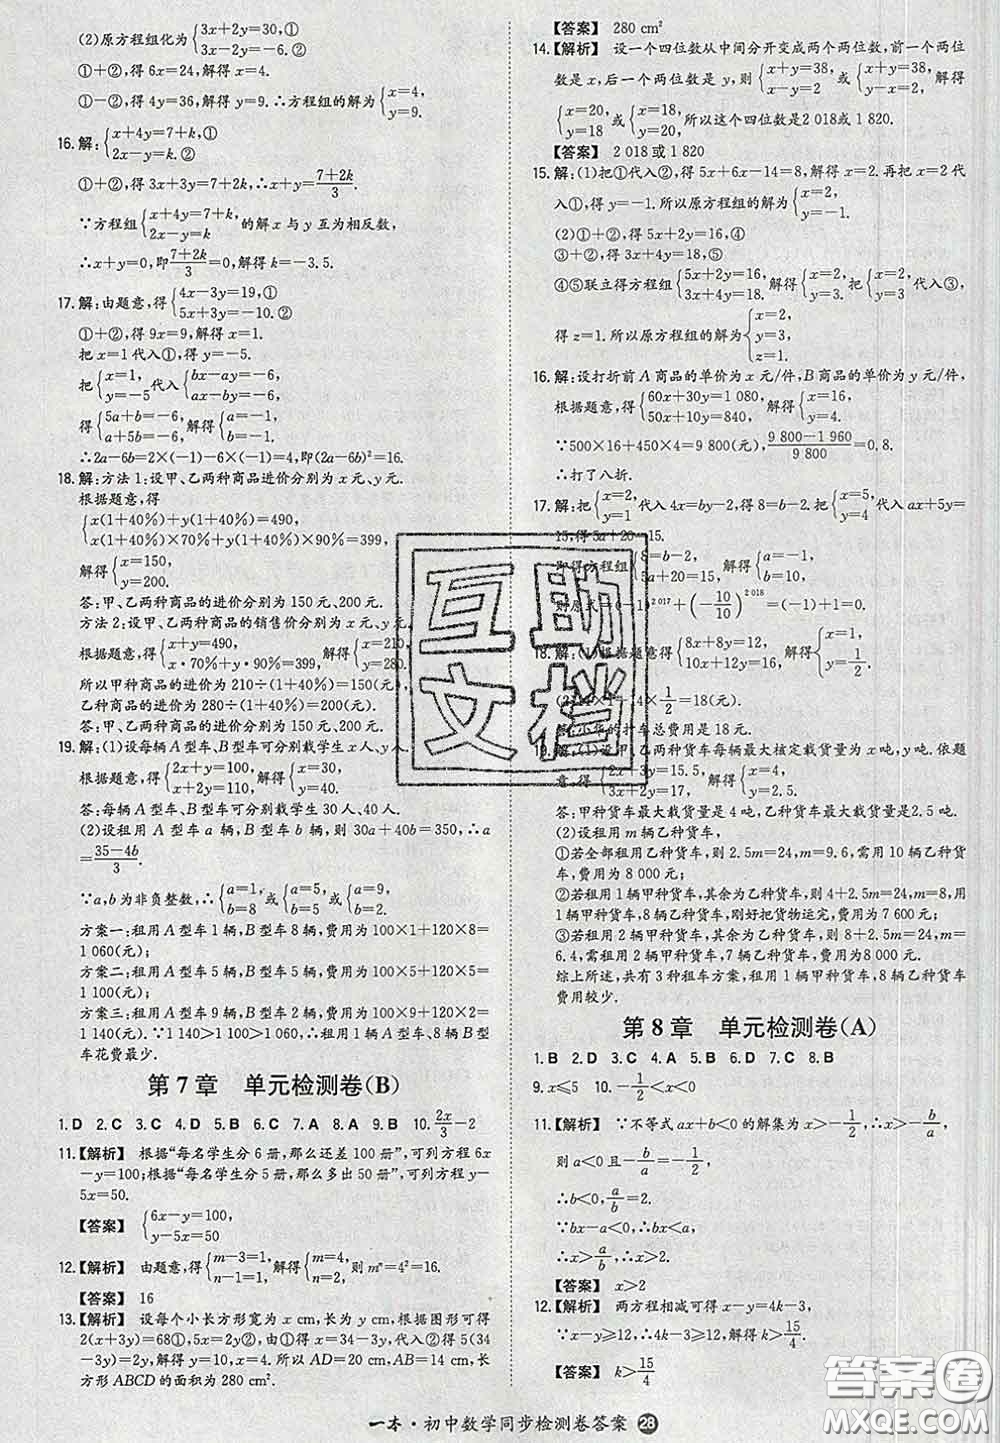 (2)原方程组化为{3x+2y=30,①
3x-2y=-6.②
①+②,得 6x=24,解得 x=4.
①-②,得 4y=36,解得 y=9.∴方程组的解为{x=4,
y=9.
16.解:{x+4y=7+k,①
2x-y=k.②
①+②,得 3x+3y=7+2k,∴x+y=(7+2k)/3.
∵方程组{x+4y=7+k,
2x-y=k 的解 x 与 y 互为相反数,
∴x+y=0,即(7+2k)/3=0,解得 k=-3.5.
17.解:由题意,得{4x-3y=19,①
5x+3y=-10.②
①+②,得 9x=9,解得 x=1.
把 x=1代入①,得 y=-5.
把{x=1,
y=-5代入{bx-ay=-6,
ax-by=-6,
得{5a+b=-6,
a+5b=-6,解得{a=-1,
b=-1.
∴2a-6b=2×(-1)-6×(-1)=4,即(2a-6b)²=16.
18.解:方法 1:设甲、乙两种商品进价分别为 x元、y元.
根据题意,得
{x(1+40%)+y(1+40%)=490,
x(1+40%)×70%+y(1+40%)×90%=399,
解得{x=150,
y=200.
答:甲、乙两种商品的进价分别为 150元、200元.
方法 2:设甲、乙两种商品的销售价分别为 x元、y元.
根据题意,得{x+y=490,
x·70%+y·90%=399, 解得{x=210,
y=280.
所以甲种商品的进价为 210÷(1+40%)=150(元),
乙种商品的进价为 280÷(1+40%)=200(元).
答:甲、乙两种商品的进价分别为 150元、200元.
19.解:(1)设每辆A型车、B型车可分别载学生x人、y人.
根据题意,得{2x+y=100,
x+2y=110,解得{x=30,
y=40.
答:每辆 A型车、B型车可分别载学生 30人、40人.
(2)设租用 A 型车 a 辆,B型车 b 辆,则 30a+40b=140,∴a
=(35-4b)/3.
∵a,b为非负整数,∴{a=1,
b=8 或{a=5,
b=5 或{a=9,
b=2.
方案一:租用 A 型车 1 辆,B 型车 8 辆,费用为 100×1+120×8=
1 060(元).
方案二:租用 A 型车 5 辆,B 型车 5 辆,费用为 100×5+120×5=
1 100(元).
方案三:租用 A 型车 9 辆,B 型车 2 辆,费用为 100×9+120×2=
1 140(元).∵1 140>1 100>1 060,∴租用 1 辆 A 型车、8 辆 B 型
车花费最少.
第 7 章 单元检测卷(B)
1.D 2.C 3.C 4.D 5.B 6.C 7.A 8.A 9.B 10.2x/3-2
11.【解析】 根据“每名学生分 6 册,那么还差 100 册”,可列方程 6x
-y=100;根据“每名学生分 5 册,那么多出 50 册”,可列方程 y-
5x=50.
【答案】 {6x-y=100,
y-5x=50
12.【解析】 由题意,得{m-3=1,
n-1=1,解得{m=4,
n=2,则 mⁿ=4²=16.
【答案】 16
13.【解析】 设每个小长方形宽为 x cm,长为 y cm,根据图形可得
2(x+3y)=68①,5x=2y②,由①得 x=34-3y,代入②得 5(34
-3y)=2y,解得 y=10,x=4.所以 AD=20 cm,AB=14 cm,长
方形 ABCD 的面积为 280 cm².
【答案】 280 cm²
14.【解析】 设一个四位数从中间分开变成两个两位数,前一个两位
数是 x,后一个两位数是 y,则{x+y=38,
x-y=2 或{x+y=38,
y-x=2, 解得
{x=20,
y=18 或{x=18,
y=20,所以这个四位数是2 018或1 820.
【答案】 2 018或1 820
15.解:(1)把①代入②,得 5x+6x-14=8,解得 x=2.再把 x=2代
入①,得 y=-1.所以原方程组的解为{x=2,
y=-1.
(2)①+②,得 5x+2y=16,④
③+②,得 3x+4y=18,⑤
④⑤联立得方程组{5x+2y=16,
3x+4y=18,解得{x=2,
y=3.把{x=2,
y=3代入③,
得 z=1.所以原方程组的解为{x=2,
y=3,
z=1.
16.解:设打折前 A 商品的单价为x元/件,B商品的单价为y元/件,
根据题意,得{60x+30y=1 080,
50x+10y=840, 解得{x=16,
y=4.
∵500×16+450×4=9 800(元),(9 800-1 960)/9 800=0.8,
∴打了八折.
17.解:把{x=2,
y=1代入 4x=by-2,得 8=b-2.把{x=5,
y=4代入 ax+5y=
15,得 5a+20=15.
即得方程组{8=b-2,
5a+20=15,解得{a=-1,
b=10,
则原式=(-1)^2 017+(-10/10)^2 018=(-1)+1=0.
18.解:(1)根据题意得{8x+8y=12,
10x+12y=16,解得{x=1,
y=1/2.
×1/2=18(元).
答:小华的打车总费用是18元.
19.解:(1)设甲、乙两种货车每辆最大核定载货量为 x吨、y吨.依题
意,得{2x+3y=15.5, 解得{x=4,
y=2.5.
答:甲种货车最大载货量是 4 吨,乙种货车最大载货量是 2.5 吨.
(2)设租用 m辆乙种货车,
①若全部租用乙种货车,则 2.5m=24,m=9.6,需用 10 辆乙种货车,
费用为 8 000 元;
②若租用 1 辆甲种货车,其余为乙种货车,则 4+2.5m=24,m=8,用
1 辆甲种货车,8 辆乙种货车,刚好把货物运完,费用为 7 600 元;
③若租用 2 辆甲种货车,其余为乙种货车,则 8+2.5m=24,m=
6.4,需用 2 辆甲种货车,7 辆乙种货车,费用为8 000元.
综上所述,共有 3 种租车方案,租用 1 辆甲种货车,8 辆乙种货车
费用较少.
第 8 章 单元检测卷(A)
1.B 2.D 3.C 4.A 5.B 6.D 7.C 8.B
9.x≤5 10.-1/2<x<0
11.【解析】 ∵不等式 ax+b<0 的解集为 x>-1/2,∴x>-b/a,
则 a>0,且-b/a=-1/2,
∴b<0,a/b=2.
∵bx-a<0,∴bx<a,
∴x>a/b,∴x>2.
【答案】 x>2
12.【解析】 两方程相减可得 x-y=4k-3,
∵x-y≥12,∴4k-3≥12,解得 k≥15/4.
【答案】 k≥15/4
一本·初中数学同步检测卷答案 28
互助
文档
答案圈
MXQE.COM